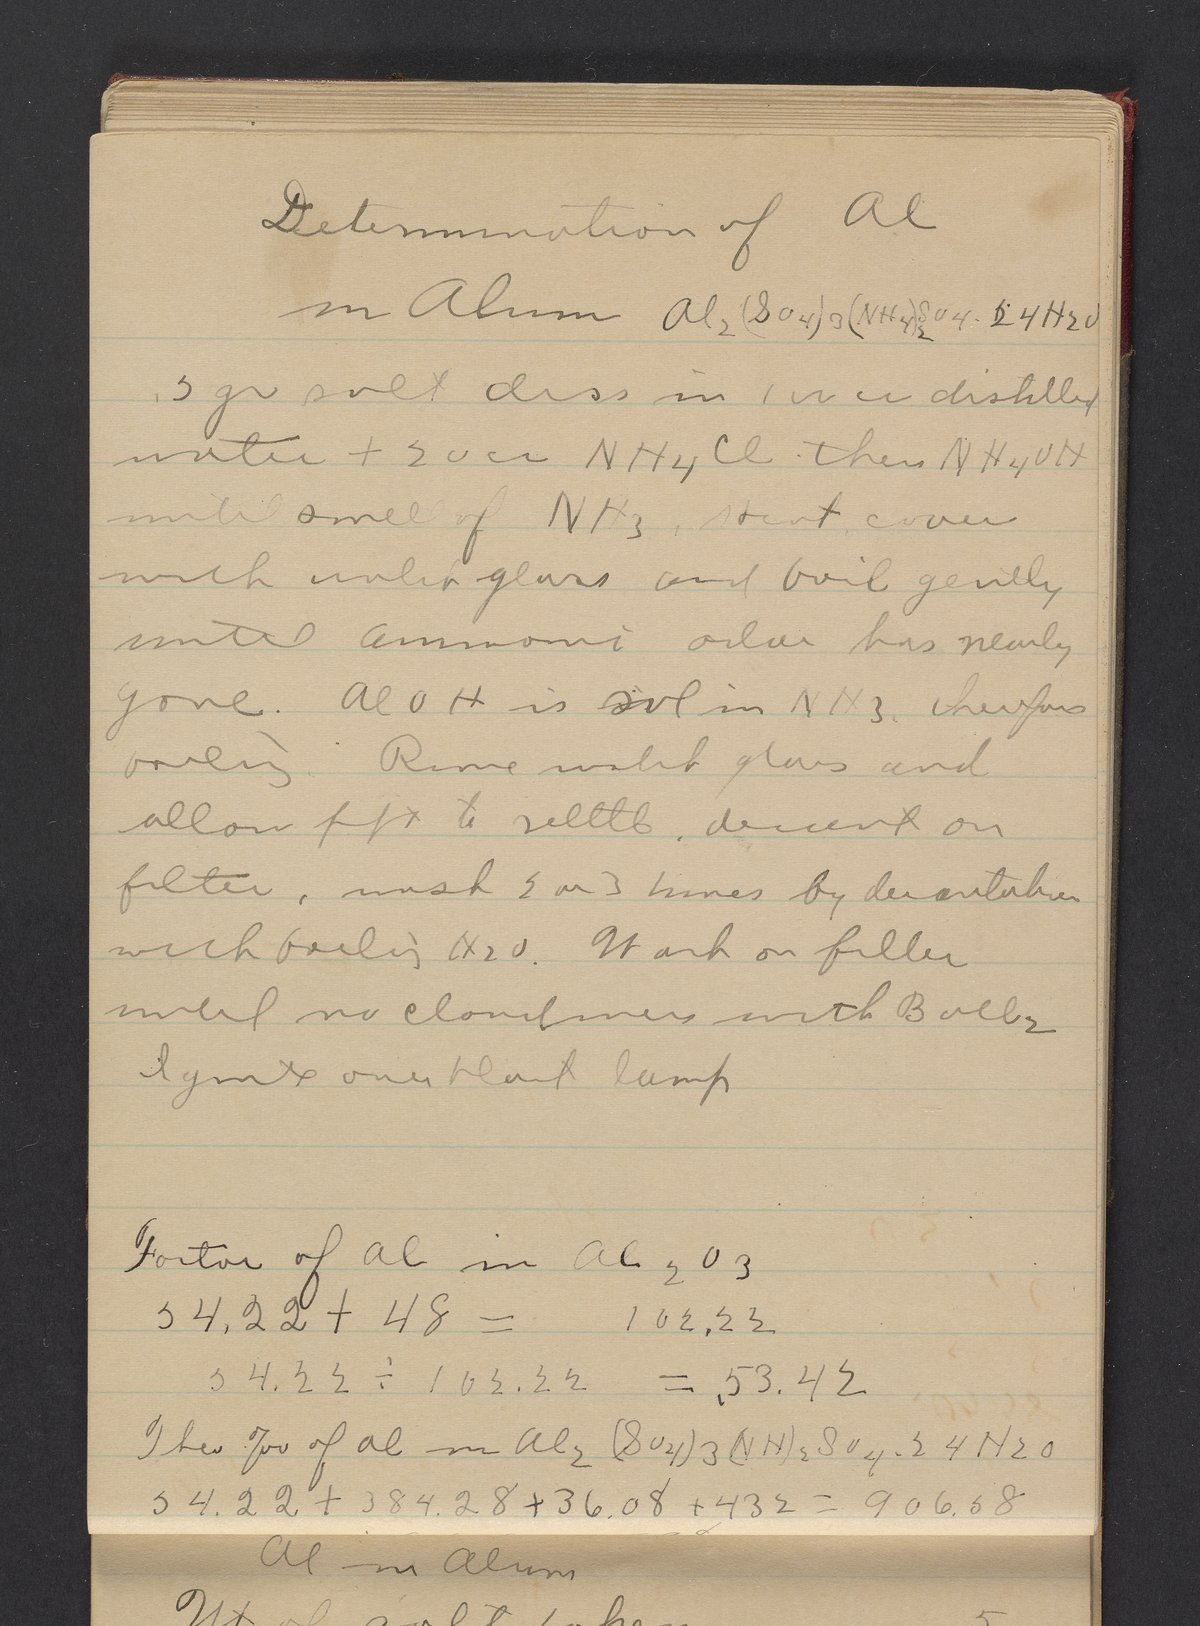 Determination of Al
in Alum Al2(SO4)3(NH4)2SO4.24H2O
.5 gr salt diss in 100 cc distilled
water + 20 cc NH4Cl then NH4OH
until smell of NH3, Heat, cover
with watch glass and boil gently
until ammoni odor has nearly
gone. AlOH is sol in NH3. therefore
boiling. Rinse watch glass and
allow ppt to settle, decant on
filter, wash 2 or 3 times by decantation
with boiling H2O. Wash on filter
until no cloudiness with BaCl2
Ignite over blast lamp
Factor of Al in Al2O3
54.22 + 48 = 102.22
54.22 ÷ 102.22 = .53.42
Theo % of Al in Al2(SO4)3(NH)2SO4.24H2O
54.22 + 384.28 + 36.08 + 432 = 906.58
Al in Alum
Wt of salt taken 5